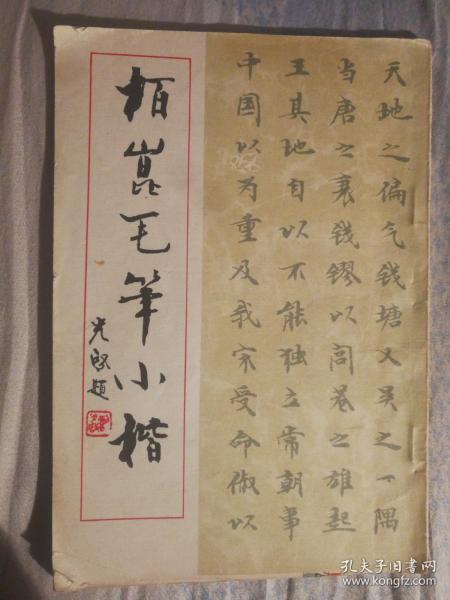 天地之偏气钱塘又吴之一隅
当唐之衰钱镠以闾巷之雄起
王其地自以不能独立常朝事
中国以为重及我宋受命俶以
柏崑毛筆小楷
光啟題
孔夫子旧书网
www.kongfz.com